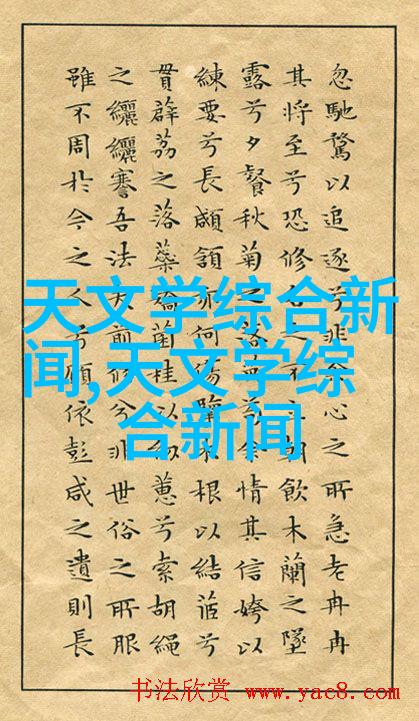 忽馳騖以追逐兮非余心之所急老冉冉
其將至兮恐修名之不立朝飲木蘭之墜
露兮夕餐秋菊之落英苟余情其信姱以
練要兮長顑頷亦何傷擥木根以結茝兮
貫薜荔之落蘂矯菌桂以紉蕙兮索胡繩
之纚纚謇吾法夫前修兮非世俗之所服
雖不周於今之人兮願依彭咸之遺則長
天文学综合新
闻,天文学综
合新闻
书法欣赏 www.yac8.com